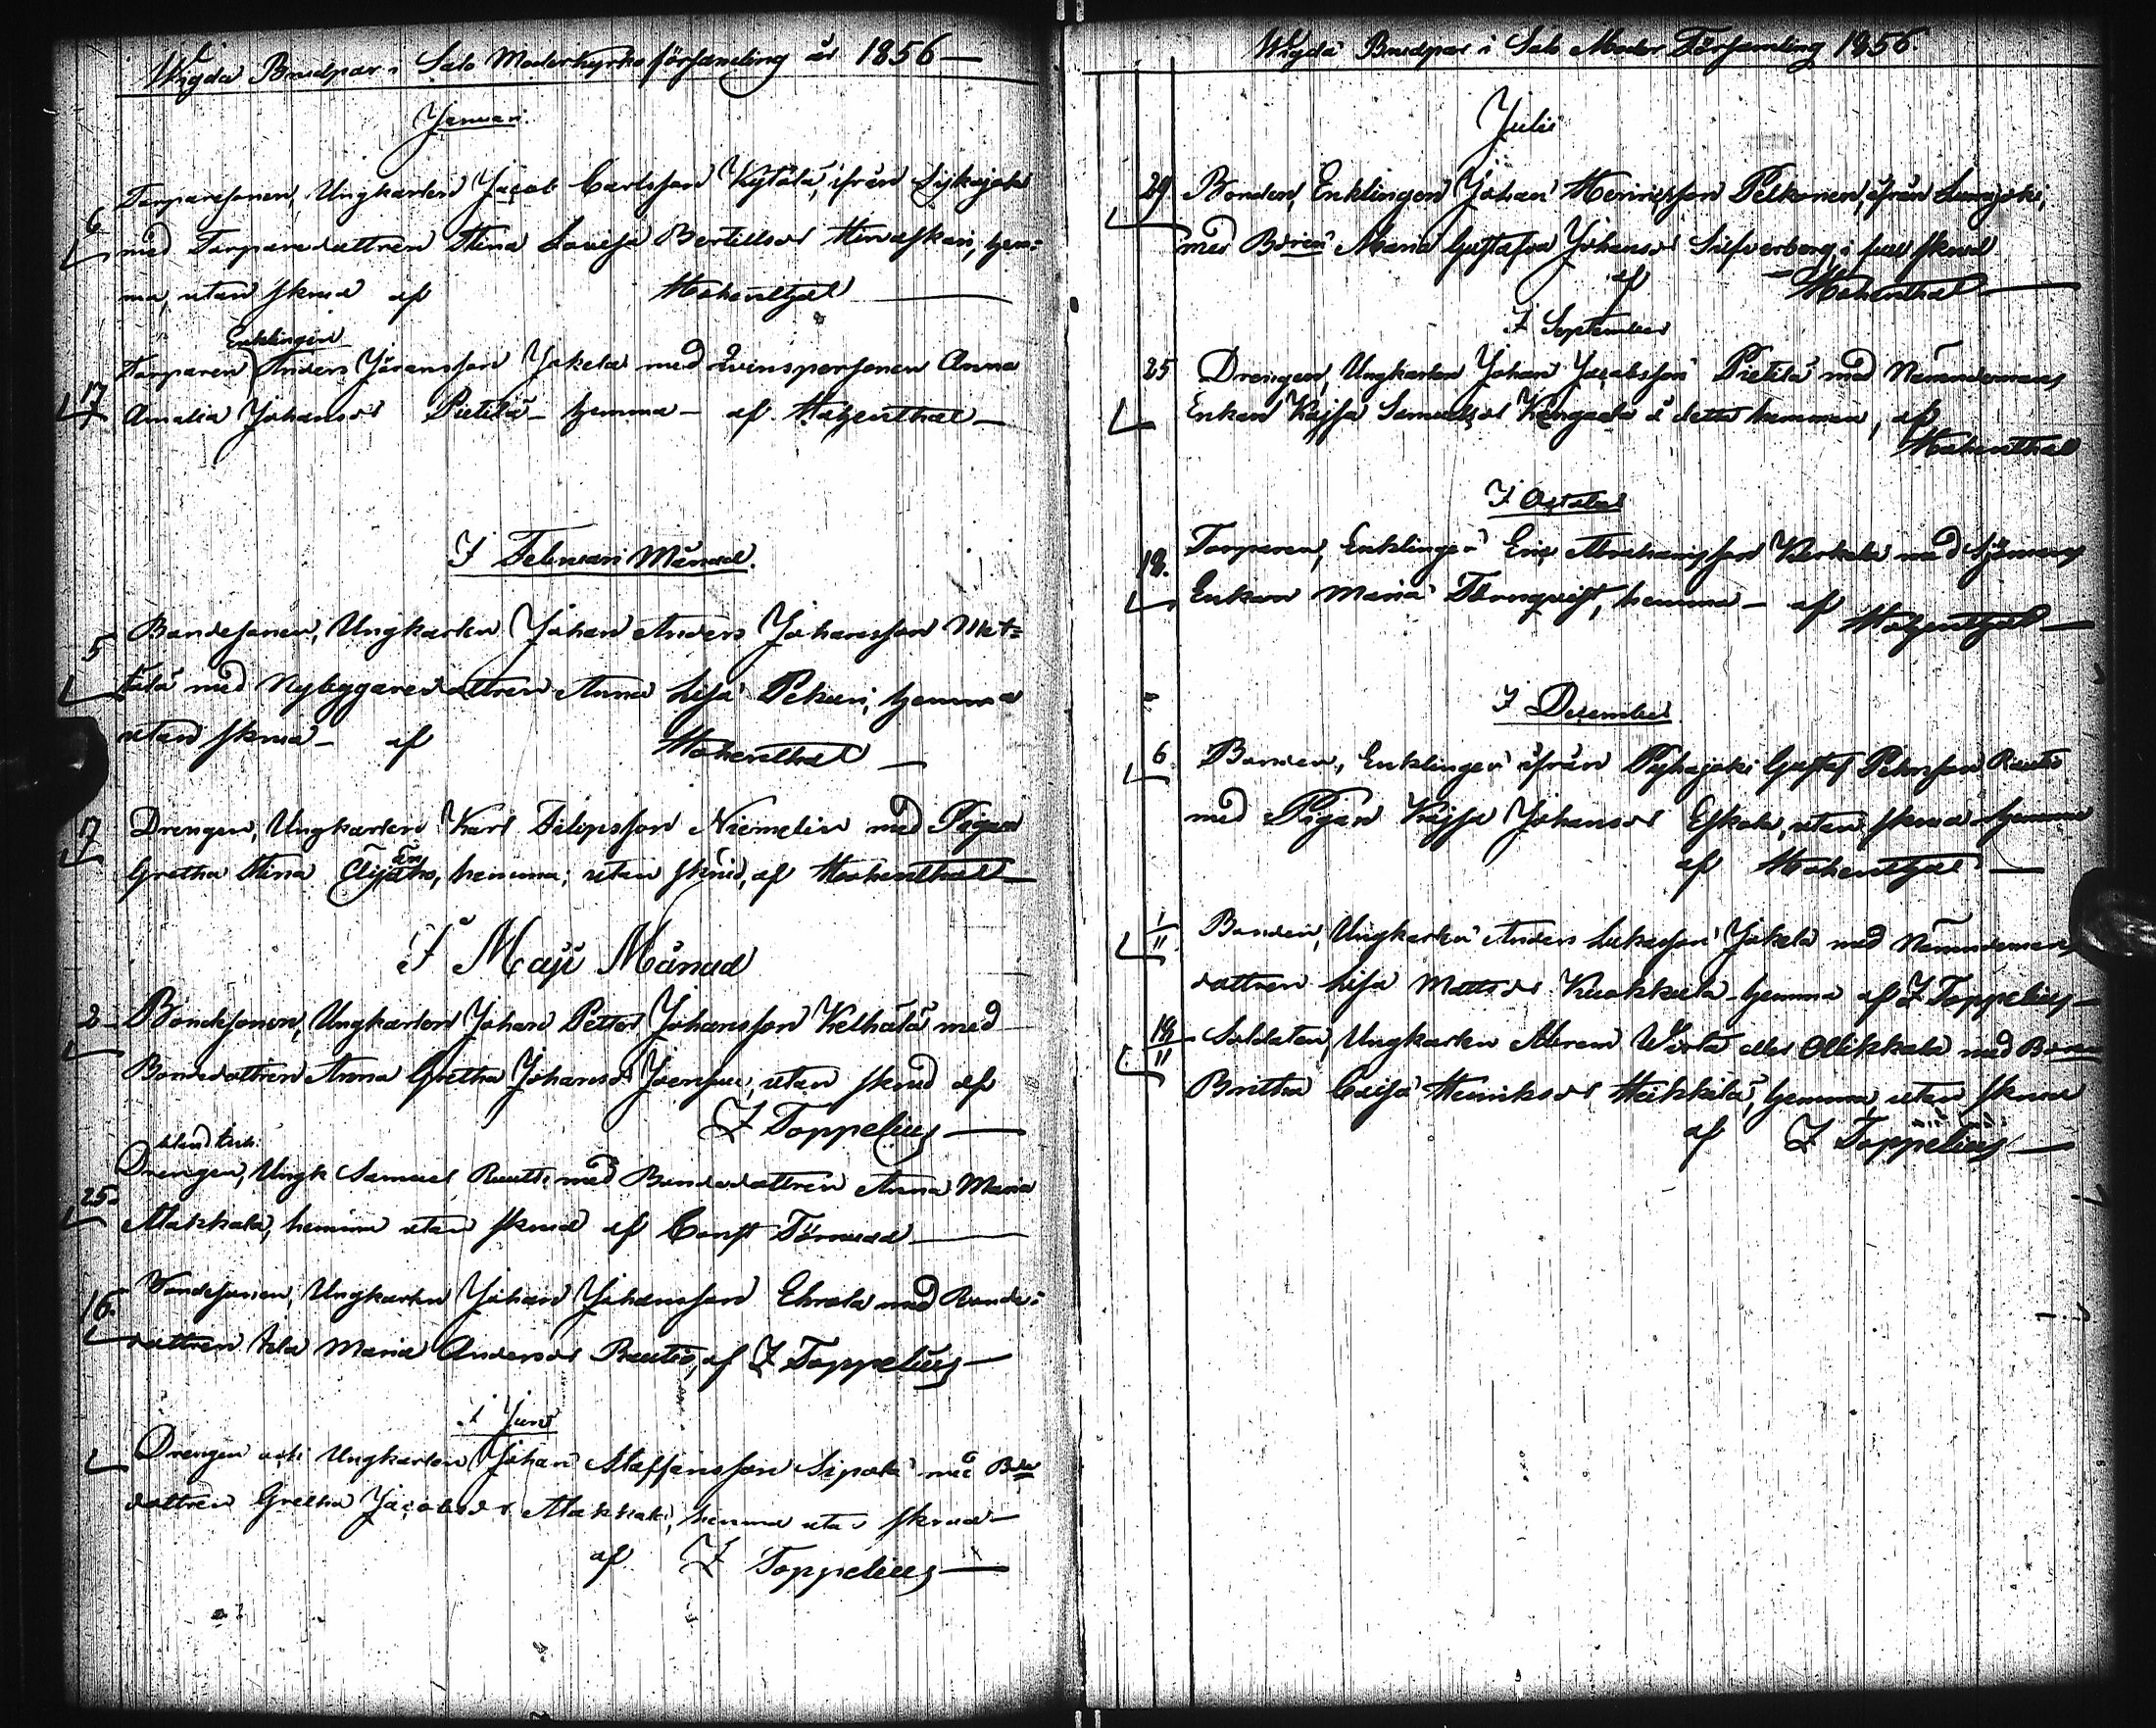 Wigda Brudpar i Salo Moderkyrko församling år 1856 —
Januari
6 Torparesonen, Ungkarlen Jacob Carlsson Kytölä, ifrån
med Torparedottren Stina Lovisa Bertilsdr hem=
ma, utan skrud af Hohenthal
Enklingen
17 Torparen Anders Göransson Jokela med Qvinspersonen Anna
Amalia Johansdr Pietilä – hemma – af Hohenthal –
I Februari Månad.
5 Bondesonen, Ungkarlen Johan Anders Johansson Met=
tälä med Nybyggaredottren Anna Lisa Pekuri, hemma
utan skrud – af Hohenthal –
17 Drengen, Ungkarlen Karl Filipsson Niemelin med Pigan
Gretha Stina hemma; utan skrud, af Hohenthal –
I Maji Månad
2 Bondesonen, Ungkarlen Johan Petter Johansson Kelhälä med
Bondedottren Anna Gretha Johansdr Joensuu, utan skrud af
Z Toppelius –
25 Drengen, Ungk Samuel Rautio med Bondedottren Anna Maria
hemma utan skrud af Const Törnudd
16. Bondesonen, Ungkarlen Johan Johansson Ehrola med Bonde=
dottren Maria Andersdr Rautio, af Z Toppelius –
i Juni
Drengen och Ungkarlen Johan Staffansson Sipola med Bde
dottren Gretha Jacobsdr hemma utan skrud –
af Z Toppelius –
Wigda Brudpar i Salo Moder Församling 1856.
Julii
29 Bonden, Enklingen Johan Henricsson Pelkonen, ifrån
med Maria Gustafva Johansdr Silfverberg, i full skrud
af Hohenthal –
I September
25 Drengen, Ungkarlen Johan Jacobsson Pietilä med Nämndemans
Enkan Kajsa Samuelsdr Kangaala å detta hemman, af
Hohenthal
I October
18. Torparen, Enklingen Eric Abrahamsson Kerkelä med Sjömans
Enkan Maria Törnqvist, hemma – af Hohenthal –
I December
6 Bonden, Enklingen ifrån Pyhäjoki Gustaf Petersson Rautio
med Pigan Kajsa Johansdr Eskola, utan skrud hemma
af Hohenthal –
1/11 Bonden, Ungkarlen Anders Lukasson Jokela med Nämndemans
dottren Lisa Mattsdr Kuokkala – hemma af Z Toppelius –
18/11 Soldaten, Ungkarlen Abram Wirta eller Ollikkala med
Britha Cajsa Henriksdr Heikkilä, hemma, utan skrud
af Z Toppelius –